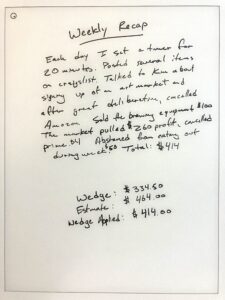 Weekly Recap
Each day I set a timer for
20 minutes. Posted several items
on craigslist. Talked to Kim about
signing up at an art market and
after great deliberation, cancelled
Amazon Sold the brewing equipment $100
prime. $4 Abstained from eating out
The market pulled $260 profit, cancelled
during week! $50 Total: $414
Wedge: $334.50
Estimate: $464.00
Wedge Applied: $414.00